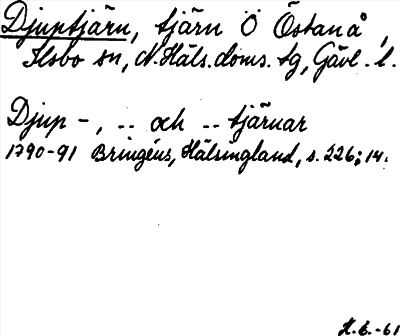 Djuptjärn, tjärn Ö Östanå,
Ilsbo sn, N.Häls.doms. tg, Gävl. l.
Djup-, .. och .. tjärnar
1790-91 Bringéus, Hälsingland, s. 226; 14.
H.E.-61